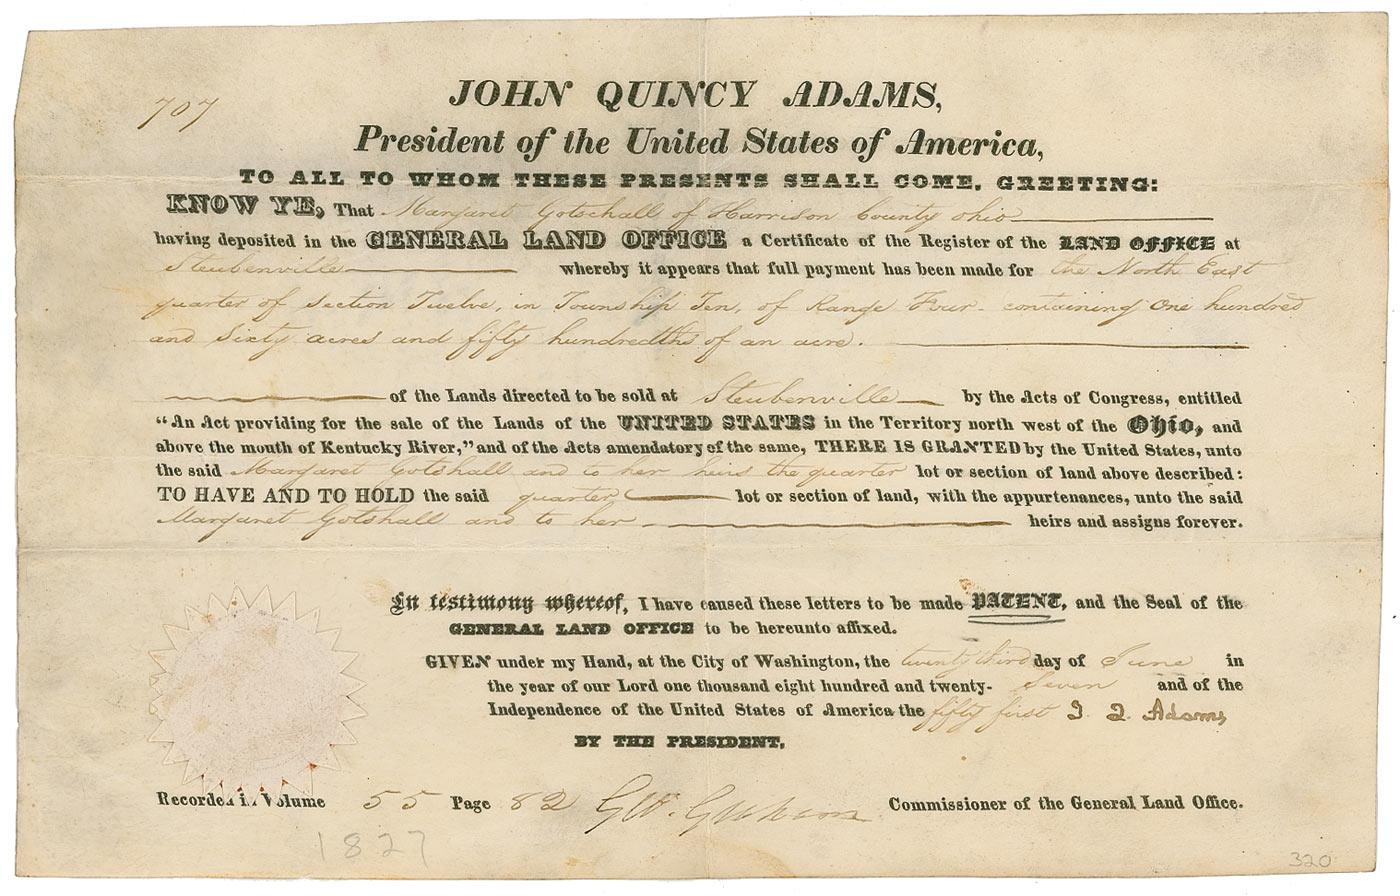 707
JOHN QUINCY ADAMS,
President of the United States of America,
TO ALL TO WHOM THESE PRESENTS SHALL COME, GREETING:
KNOW YE, That Margaret Gotschall of Harrison County Ohio
having deposited in the GENERAL LAND OFFICE a Certificate of the Register of the LAND OFFICE at
Steubenville whereby it appears that full payment has been made for the North East
quarter of Section Twelve, in Township Ten, of Range Four - containing One hundred
and Sixty acres and fifty hundredths of an acre.
of the Lands directed to be sold at Steubenville by the Acts of Congress, entitled
“An Act providing for the sale of the Lands of the UNITED STATES in the Territory north west of the Ohio, and
above the mouth of Kentucky River,” and of the Acts amendatory of the same, THERE IS GRANTED by the United States, unto
the said Margaret Gotshall and to her heirs the quarter lot or section of land above described:
TO HAVE AND TO HOLD the said quarter lot or section of land, with the appurtenances, unto the said
Margaret Gotshall and to her heirs and assigns forever.
In testimony whereof, I have caused these letters to be made PATENT, and the Seal of the
GENERAL LAND OFFICE to be hereunto affixed.
GIVEN under my Hand, at the City of Washington, the twenty third day of June in
the year of our Lord one thousand eight hundred and twenty- Seven and of the
Independence of the United States of America the fifty first J. Q. Adams
BY THE PRESIDENT,
Recorded in Volume 55 Page 82 G.W. Graham Commissioner of the General Land Office.
1827
320